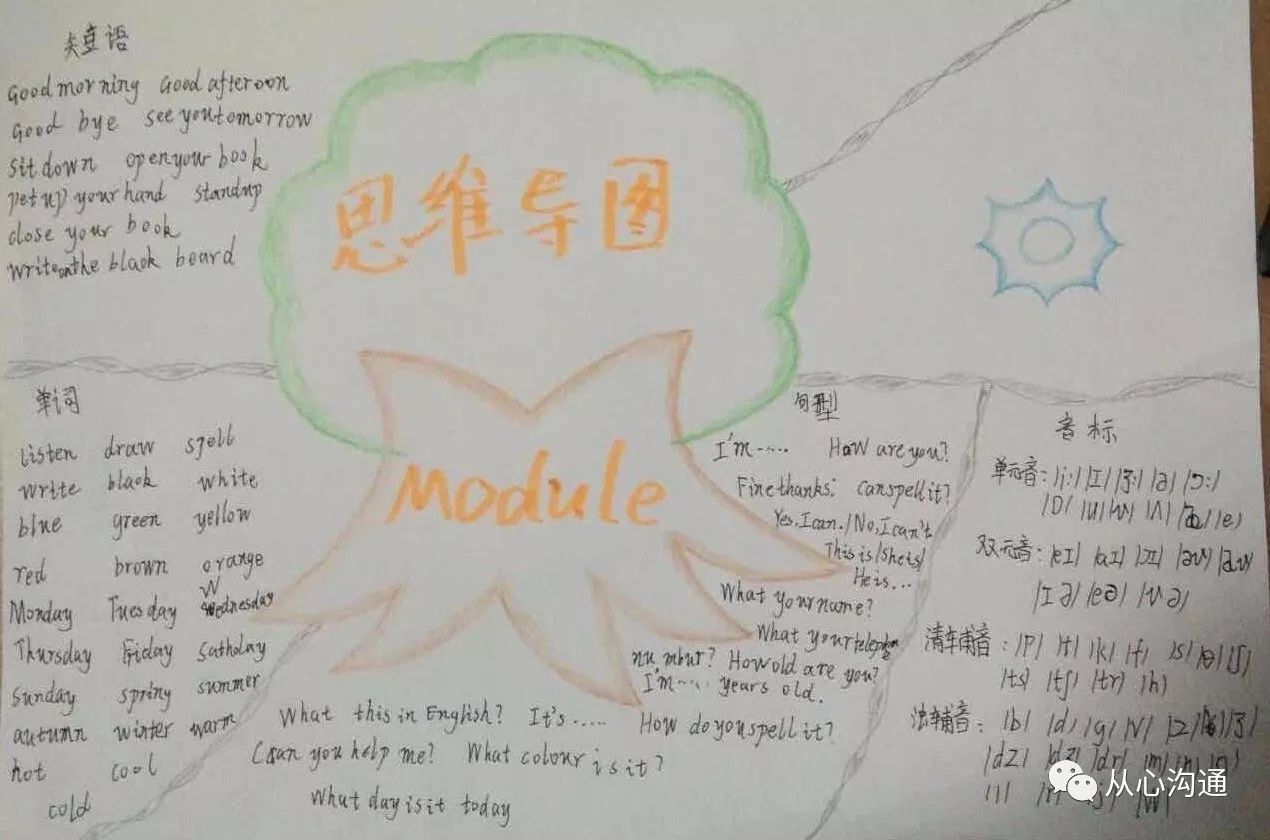 短语
Good morning Good afteroon
Good bye see you tomorrow
Sit down open your book
pet up your hand stand up
close your book
write on the black board
思维导图
Module
单词
Listen draw spell
write black white
blue green yellow
red brown orange
Monday Tuesday Wednesday
Thursday Friday
Sunday spring summer
autumn winter warm
hot cool
cold
句型
I'm····· How are you?
Fine thanks. can spell it?
Yes, I can. / No, I can't
This is / She is /
He is...
What your name?
What your telephon
nu mbur? How old are you?
I'm····· years old.
What this in English? It's ..... How do you spell it?
Can you help me? What colour is it?
What day is it today
音标
单元音: /i:/ /ɪ/ /ɜ:/ /ə/ /ɔ:/
/ɒ/ /u/ /ʌ/ /e/
双元音: /eɪ/ /aɪ/ /ɔɪ/ /əʊ/ /aʊ/
/ɪə/ /eə/ /ʊə/
清辅音: /p/ /t/ /k/ /f/ /s/ /θ/ /ʃ/
/ts/ /tʃ/ /tr/ /h/
浊辅音: /b/ /d/ /g/ /v/ /z/ /ʒ/
/dz/ /dʒ/ /dr/ /m/ /n/ /ŋ/
/l/ /r/ /j/ /w/
从心沟通